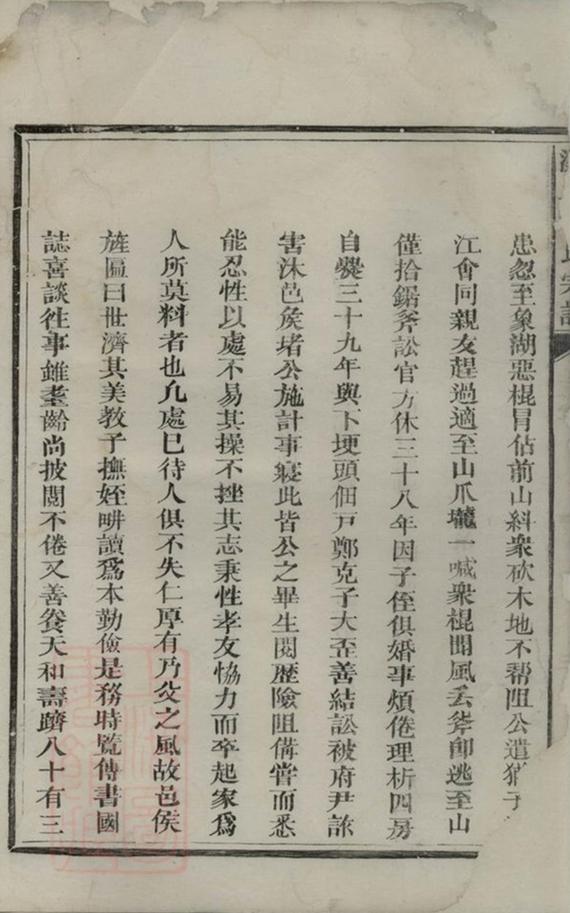 氏宗譜
患忽至象湖惡棍冒佔前山糾衆砍木地不帮阻公遣猶子
江會同親友趕過適至山爪壠一喊衆棍聞風丢斧卸逃至山
僅拾鋸斧訟官方休三十八年因子侄俱婚事煩倦理析四房
自爨三十九年與下埂頭佃戸鄭克子大歪善結訟被府尹詠
害沭邑矦堵公施計事寢此皆公之畢生閱歷險阻備嘗而悉
能忍性以處不易其操不挫其志秉性孝友恊力而卒起家爲
人所莫料者也凢處巳待人俱不失仁厚有乃父之風故邑侯
旌匾曰世濟其美教子撫姪畊讀爲本勤儉是務時覧傳書國
誌喜談徃事雖耋齡尚披閱不倦又善飬天和壽躋八十有三